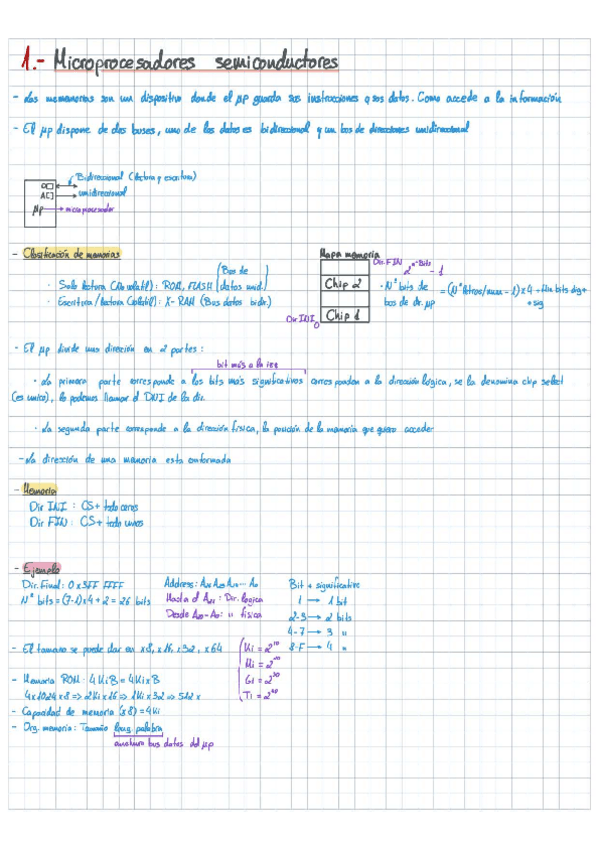 1.- Microprocesadores semiconductores
- Las mememorias son un dispositivo donde el μp guarda sus instrucciones y sus datos. Como accede a la información
- El μp dispone de dos buses, uno de los datos es bidireccional y un bus de direcciones unidireccional
Bidireccional (lectura y escritura)
AC unidireccional
μp → microprocesador
- Clasificación de memorias
· Solo lectura (No volatil): ROM, FLASH (Bus de datos unid.)
· Escritura/lectura (Volatil): X-RAM (Bus datos bidir.)
Mapa memoria
Dir.FIN 2^(nº Bits) - 1
Chip 2
Chip 1
Dir INI 0
· Nº bits de bus de dir. μp = (Nº letras/num - 1) x 4 + Nun bits dig + sig
- El μp divide una dirección en 2 partes:
bit más a la izq
· La primera parte corresponde a los bits más significativos corresponden a la dirección lógica, se la denomina chip select
(es unico), lo podemos llamar el DNI de la dir.
· La segunda parte corresponde a la dirección física, la posición de la memoria que quiero acceder
- La dirección de una memoria esta conformada
- Memoria
Dir INI : CS + todo ceros
Dir FIN : CS + todo unos
- Ejemplo
Dir. Final: 0x3FF FFFF
Nº bits = (7-1) x 4 + 2 = 26 bits
Hasta el : Dir. logica
Desde : " fisica
Bit + significativo
1 → 1 bit
2-3 → 2 bits
4-7 → 3 "
8-F → 4 "
- El tamaño se puede dar en x8, x16, x32, x64
Ki = 2^10
Mi = 2^20
Gi = 2^30
Ti = 2^40
- Memoria ROM · 4KiB = 4Kix8
4x1024x8 => 2Kix16 => 1Kix32 => 512x
- Capacidad de memoria (x8) = 4Ki
- Org. memoria: Tamaño long palabra
anchura bus datos del μp